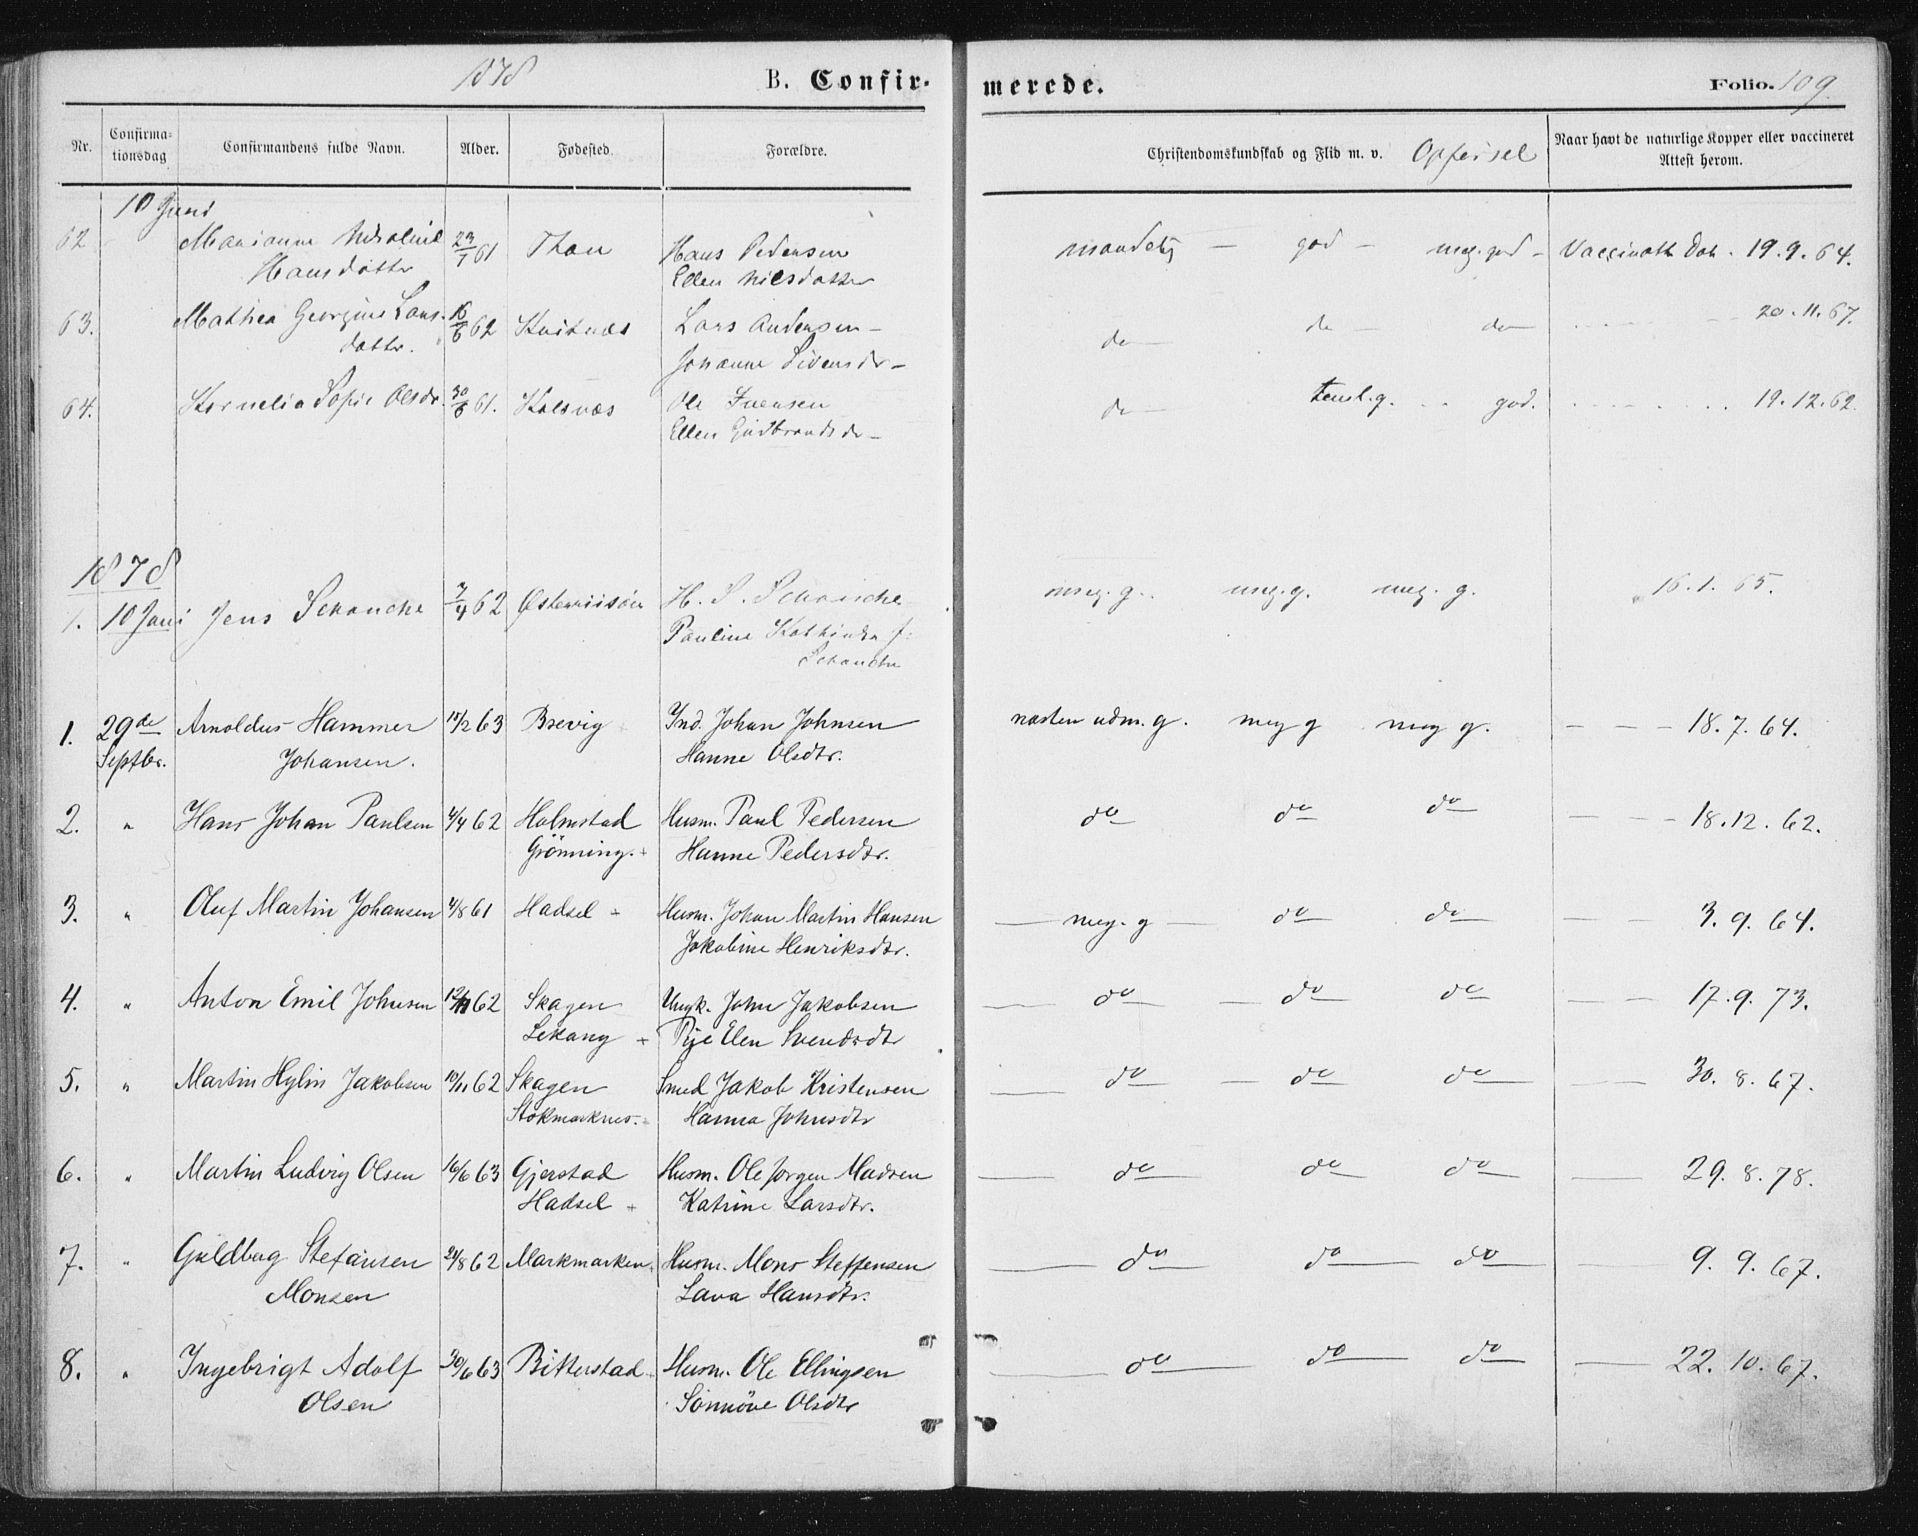 1878 B. Confirmerede. Folio. 109.
Nr. Confirmationsdag Confirmandens fulde Navn. Alder. Fødested. Forældre. Christendomskundskab og Flid m. v. Opførsel Naar havt de naturlige Kopper eller vaccineret Attest herom.
10 Juni
62 Marianne Nikoline 23/7 61 Thon Hans Pedersen maadelig — god — meg. god — Vaccinatt. Dat. 19.9.64.
Hansdatter Ellen Nilsdatter
63. Mathea Georgine Lars- 16/6 62 Kvitnæs Lars Andersen do do do 20.11.67.
datter. Johanne Sivertsdr
64. Kornelia Sofie Olsdr. 30/6 61. Kalsnæs Ole Iversen do teml. g. god. 19.12.62.
Ellen Gudbrandsdr
1878
1. 10 Juni Jens Schanche 7/4 62 Østerriisøer H. S. Schanche meg. g. meg. g. meg. g. 16.1.65.
Pauline Kathinka f:
Schanche
1. 29de Arnoldus Hammer 18/2 63 Brevig Ind. Johan Johnsen næsten udm. g. meg g meg g. — — — 18.7.64.
Septbr. Johansen. Hanne Olsdtr.
2. " Hans Johan Paulsen 4/4 62 Holmstad Husm. Paul Pedersen do do do — — — 18.12.62.
Grönning. + Hanne Pedersdtr.
3. " Oluf Martin Johansen 4/8 61 Hadsel + Husm. Johan Martin Hansen — meg. g — do do — — 3.9.64.
Jakobine Henriksdtr.
4. " Anton Emil Johnsen 12/11 62 Skagen Ungk. John Jakobsen — do — do do — — 17.9.73.
Lekang + Pije Elen Svendsdtr
5. " Martin Hylin Jakobsen 10/11 62 Skagen Smed Jakob Kristensen — do — do do — — 30.8.67.
Stokmarknes. Hanna Johnsdtr
6. " Martin Ludvig Olsen 16/6 63 Gjerstad Husm. Ole Jørgen Madsen — do do do — 29.8.78.
Hadsel + Katrine Larsdtr.
7. " Guldbag Stefansen 24/8 62 Markmarken. Husm. Mons Steffensen — do do do — 9.9.67.
Monsen Lava Hansdtr.
8. " Ingebrigt Adolf 30/6 63 Bitterstad Husm. Ole Ellingsen — do do do — 22.10.67.
Olsen Sönnöve Olsdtr